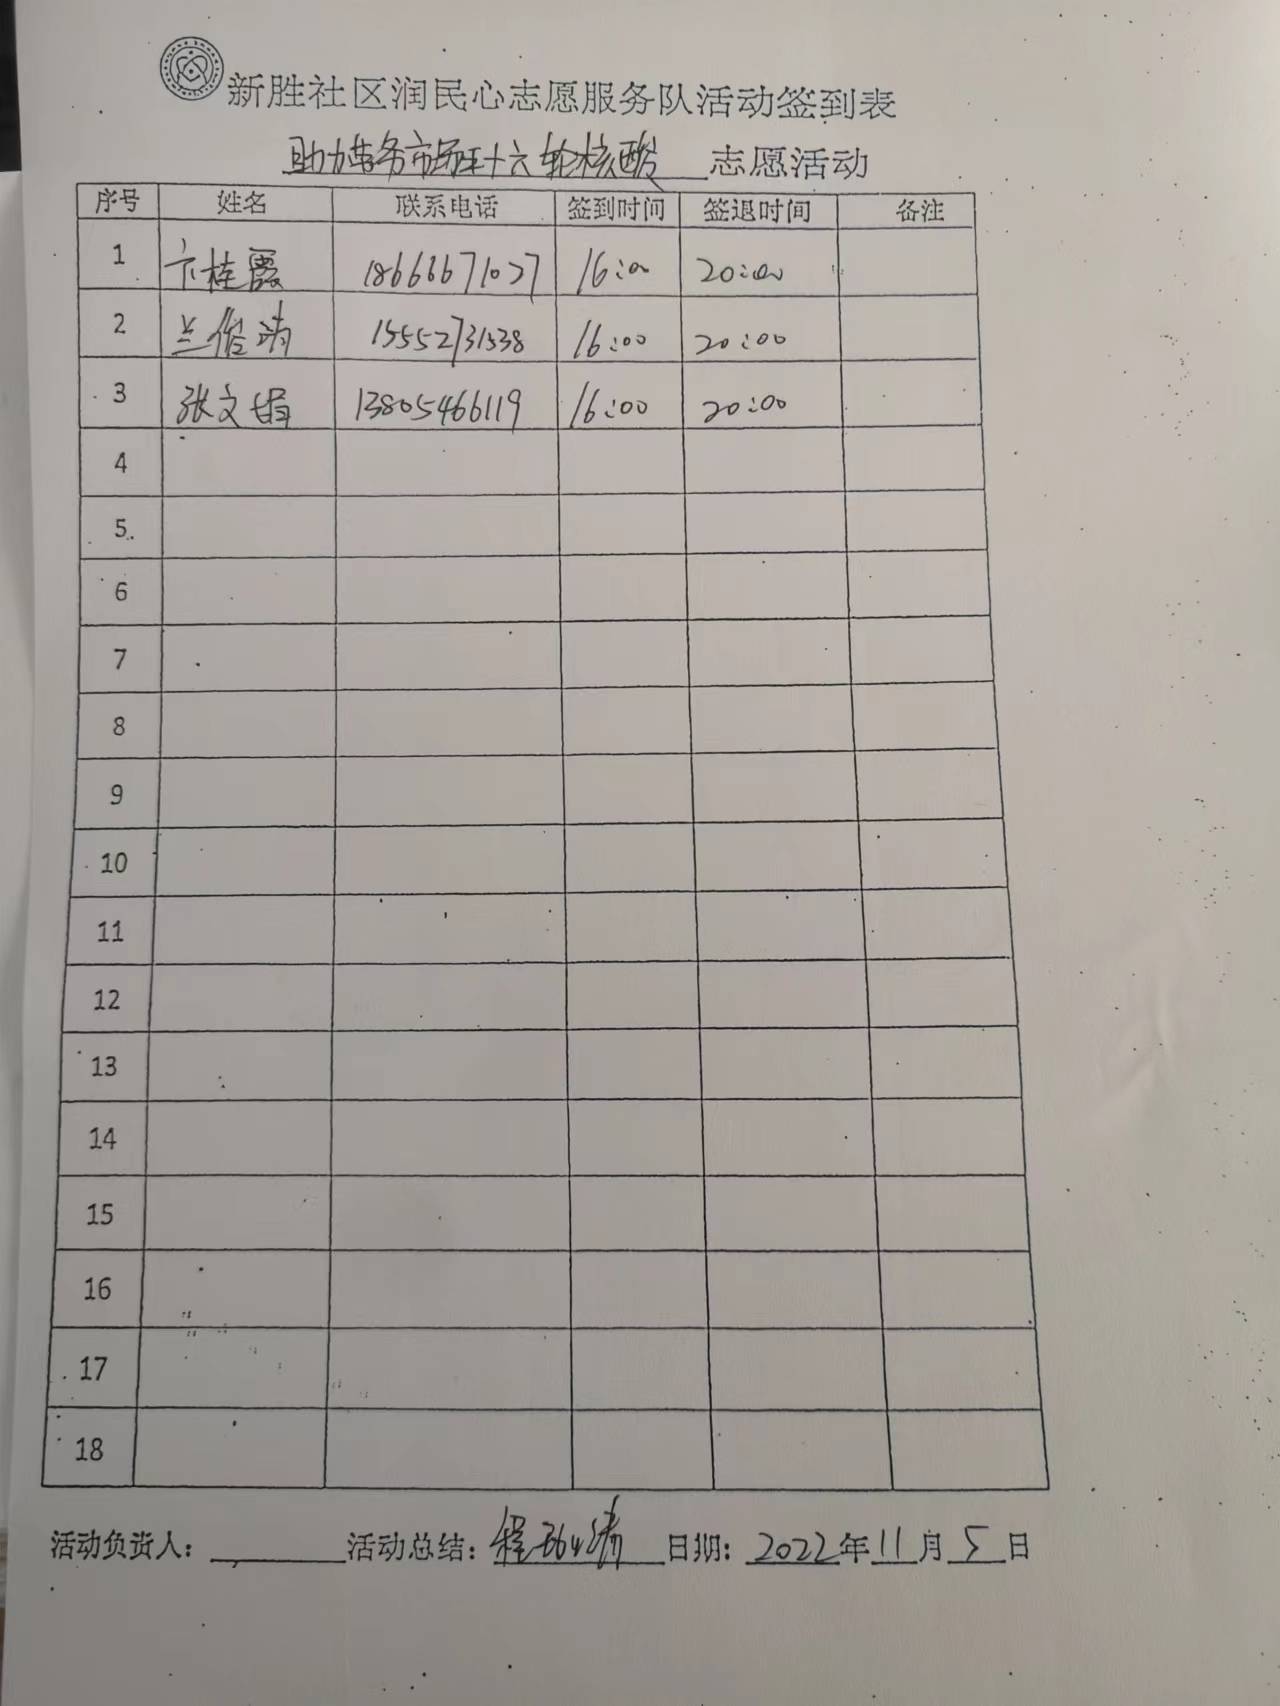 新胜社区润民心志愿服务队活动签到表
助力 市场 十六轮核酸 志愿活动
序号 姓名 联系电话 签到时间 签退时间 备注
1 卞桂霞 18666671027 16:00 20:00
2 兰俊涛 15552731538 16:00 20:00
3 张文娟 13805466119 16:00 20:00
4
5
6
7
8
9
10
11
12
13
14
15
16
17
18
活动负责人: 活动总结: 日期: 2022年11月5日